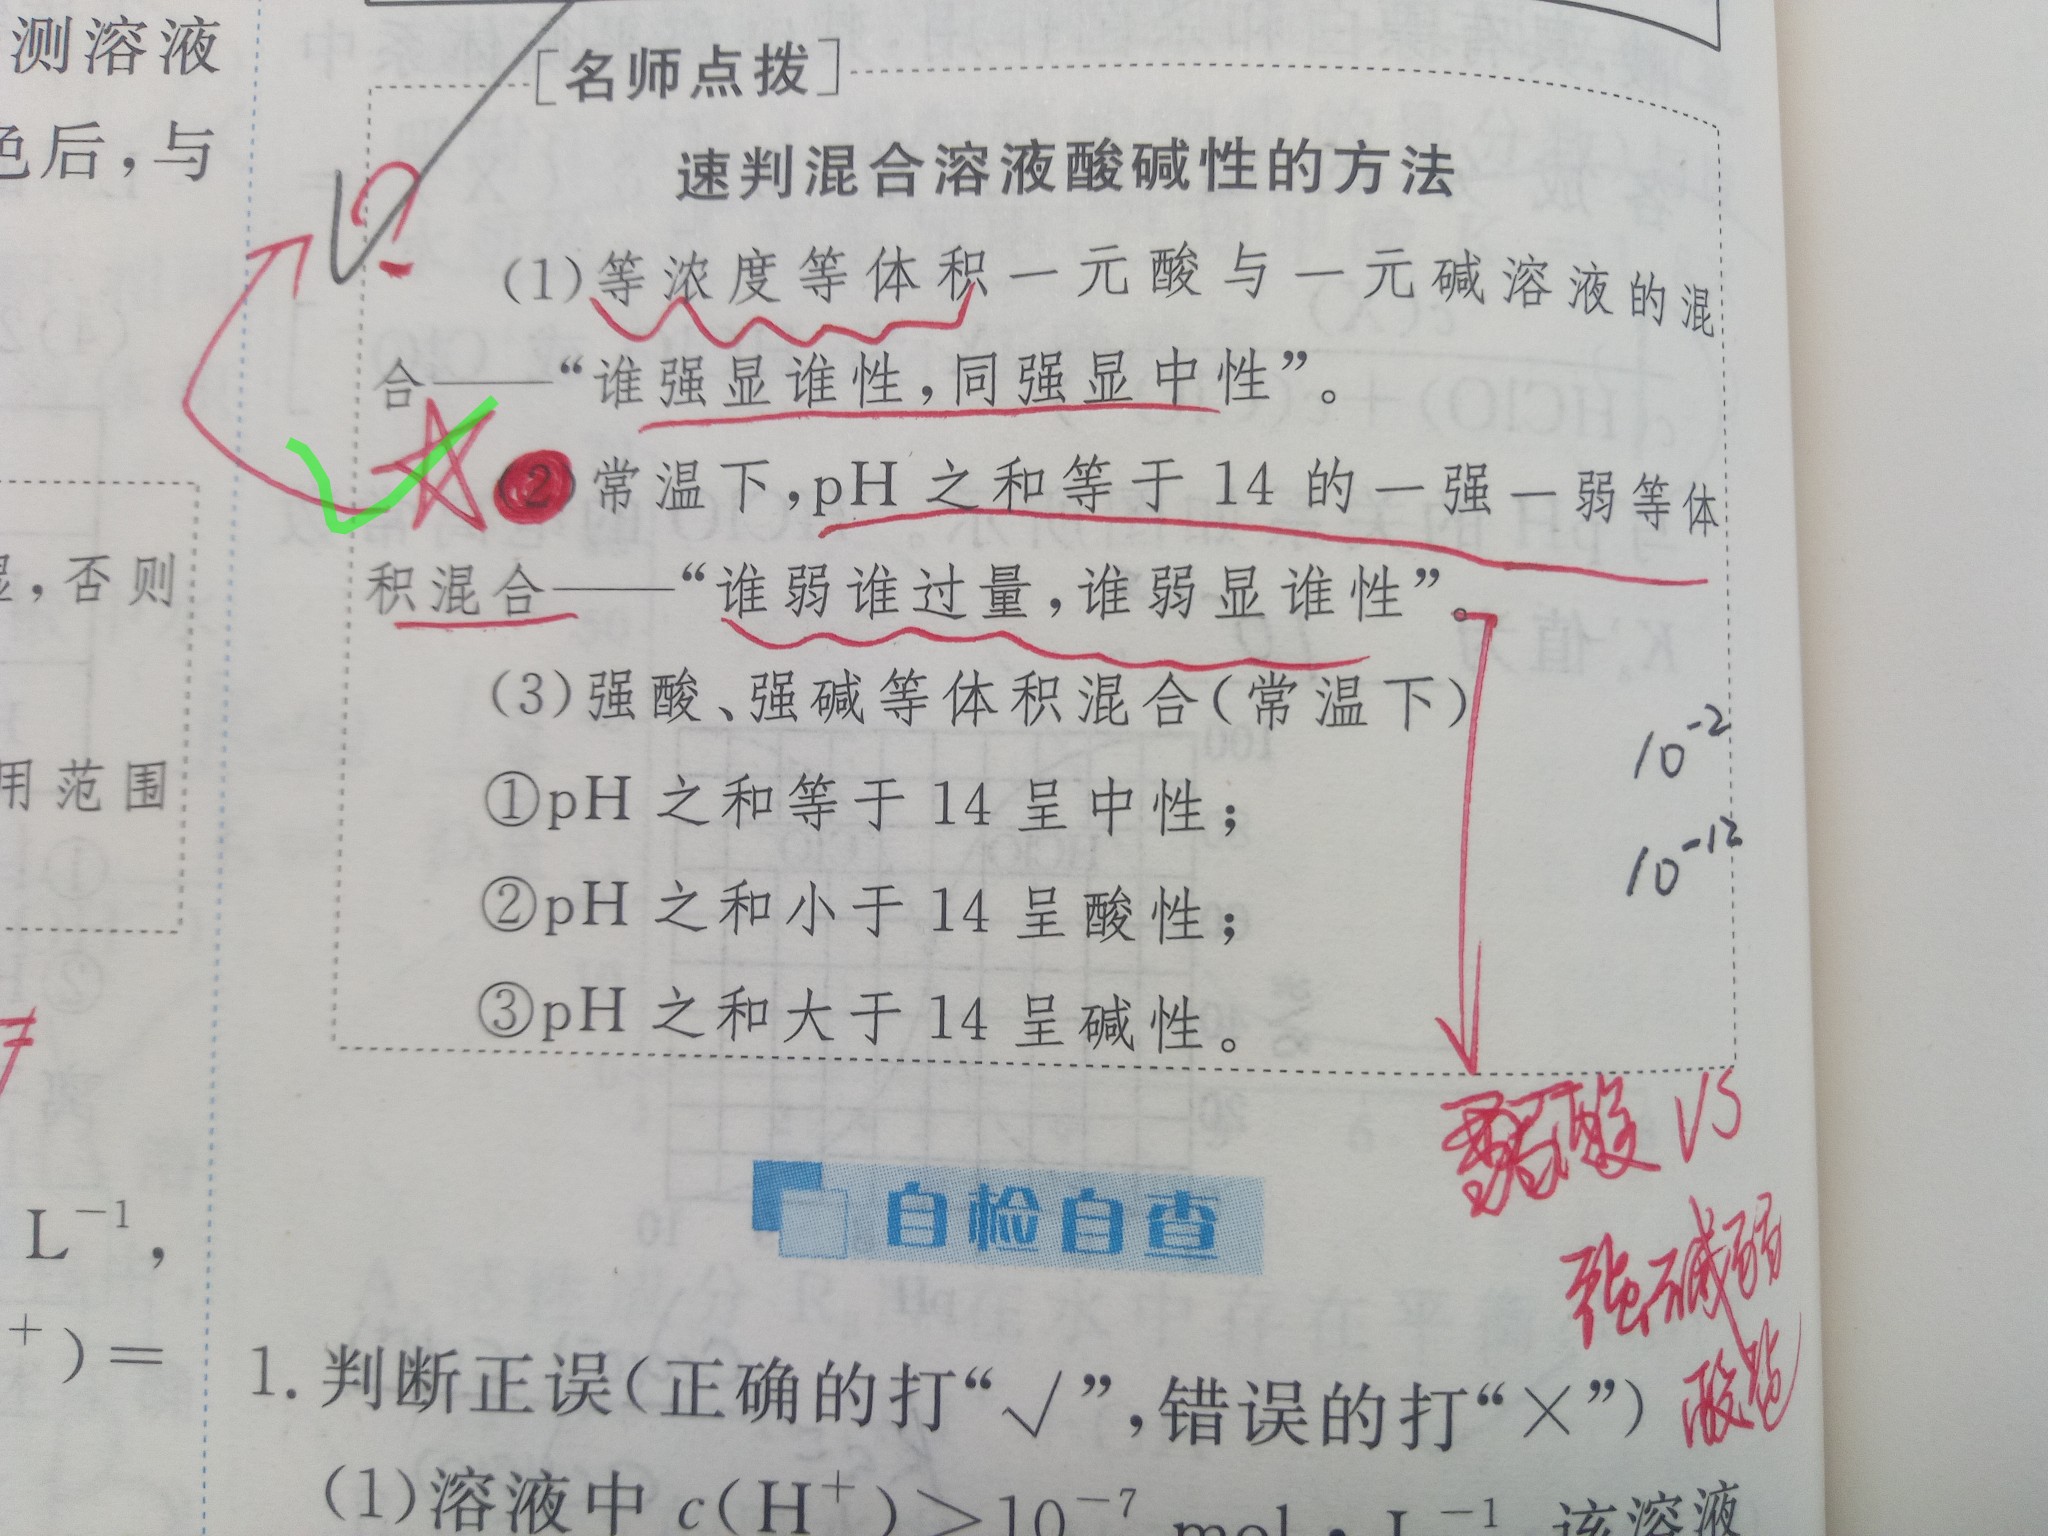 测溶液
色后,与
湿,否则
用范围
L⁻¹,
⁺)=
[名师点拨]
速判混合溶液酸碱性的方法
(1)等浓度等体积一元酸与一元碱溶液的混
合——“谁强显谁性,同强显中性”。
(2)常温下,pH 之和等于 14 的一强一弱等体
积混合——“谁弱谁过量,谁弱显谁性”。
(3)强酸、强碱等体积混合(常温下)
①pH 之和等于 14 呈中性;
②pH 之和小于 14 呈酸性;
③pH 之和大于 14 呈碱性。
10⁻²
10⁻¹²
醋酸 VS
强碱弱
酸盐
自检自查
1. 判断正误(正确的打“√”,错误的打“×”)
(1)溶液中 c(H⁺)>10⁻⁷ mol·L⁻¹,该溶液